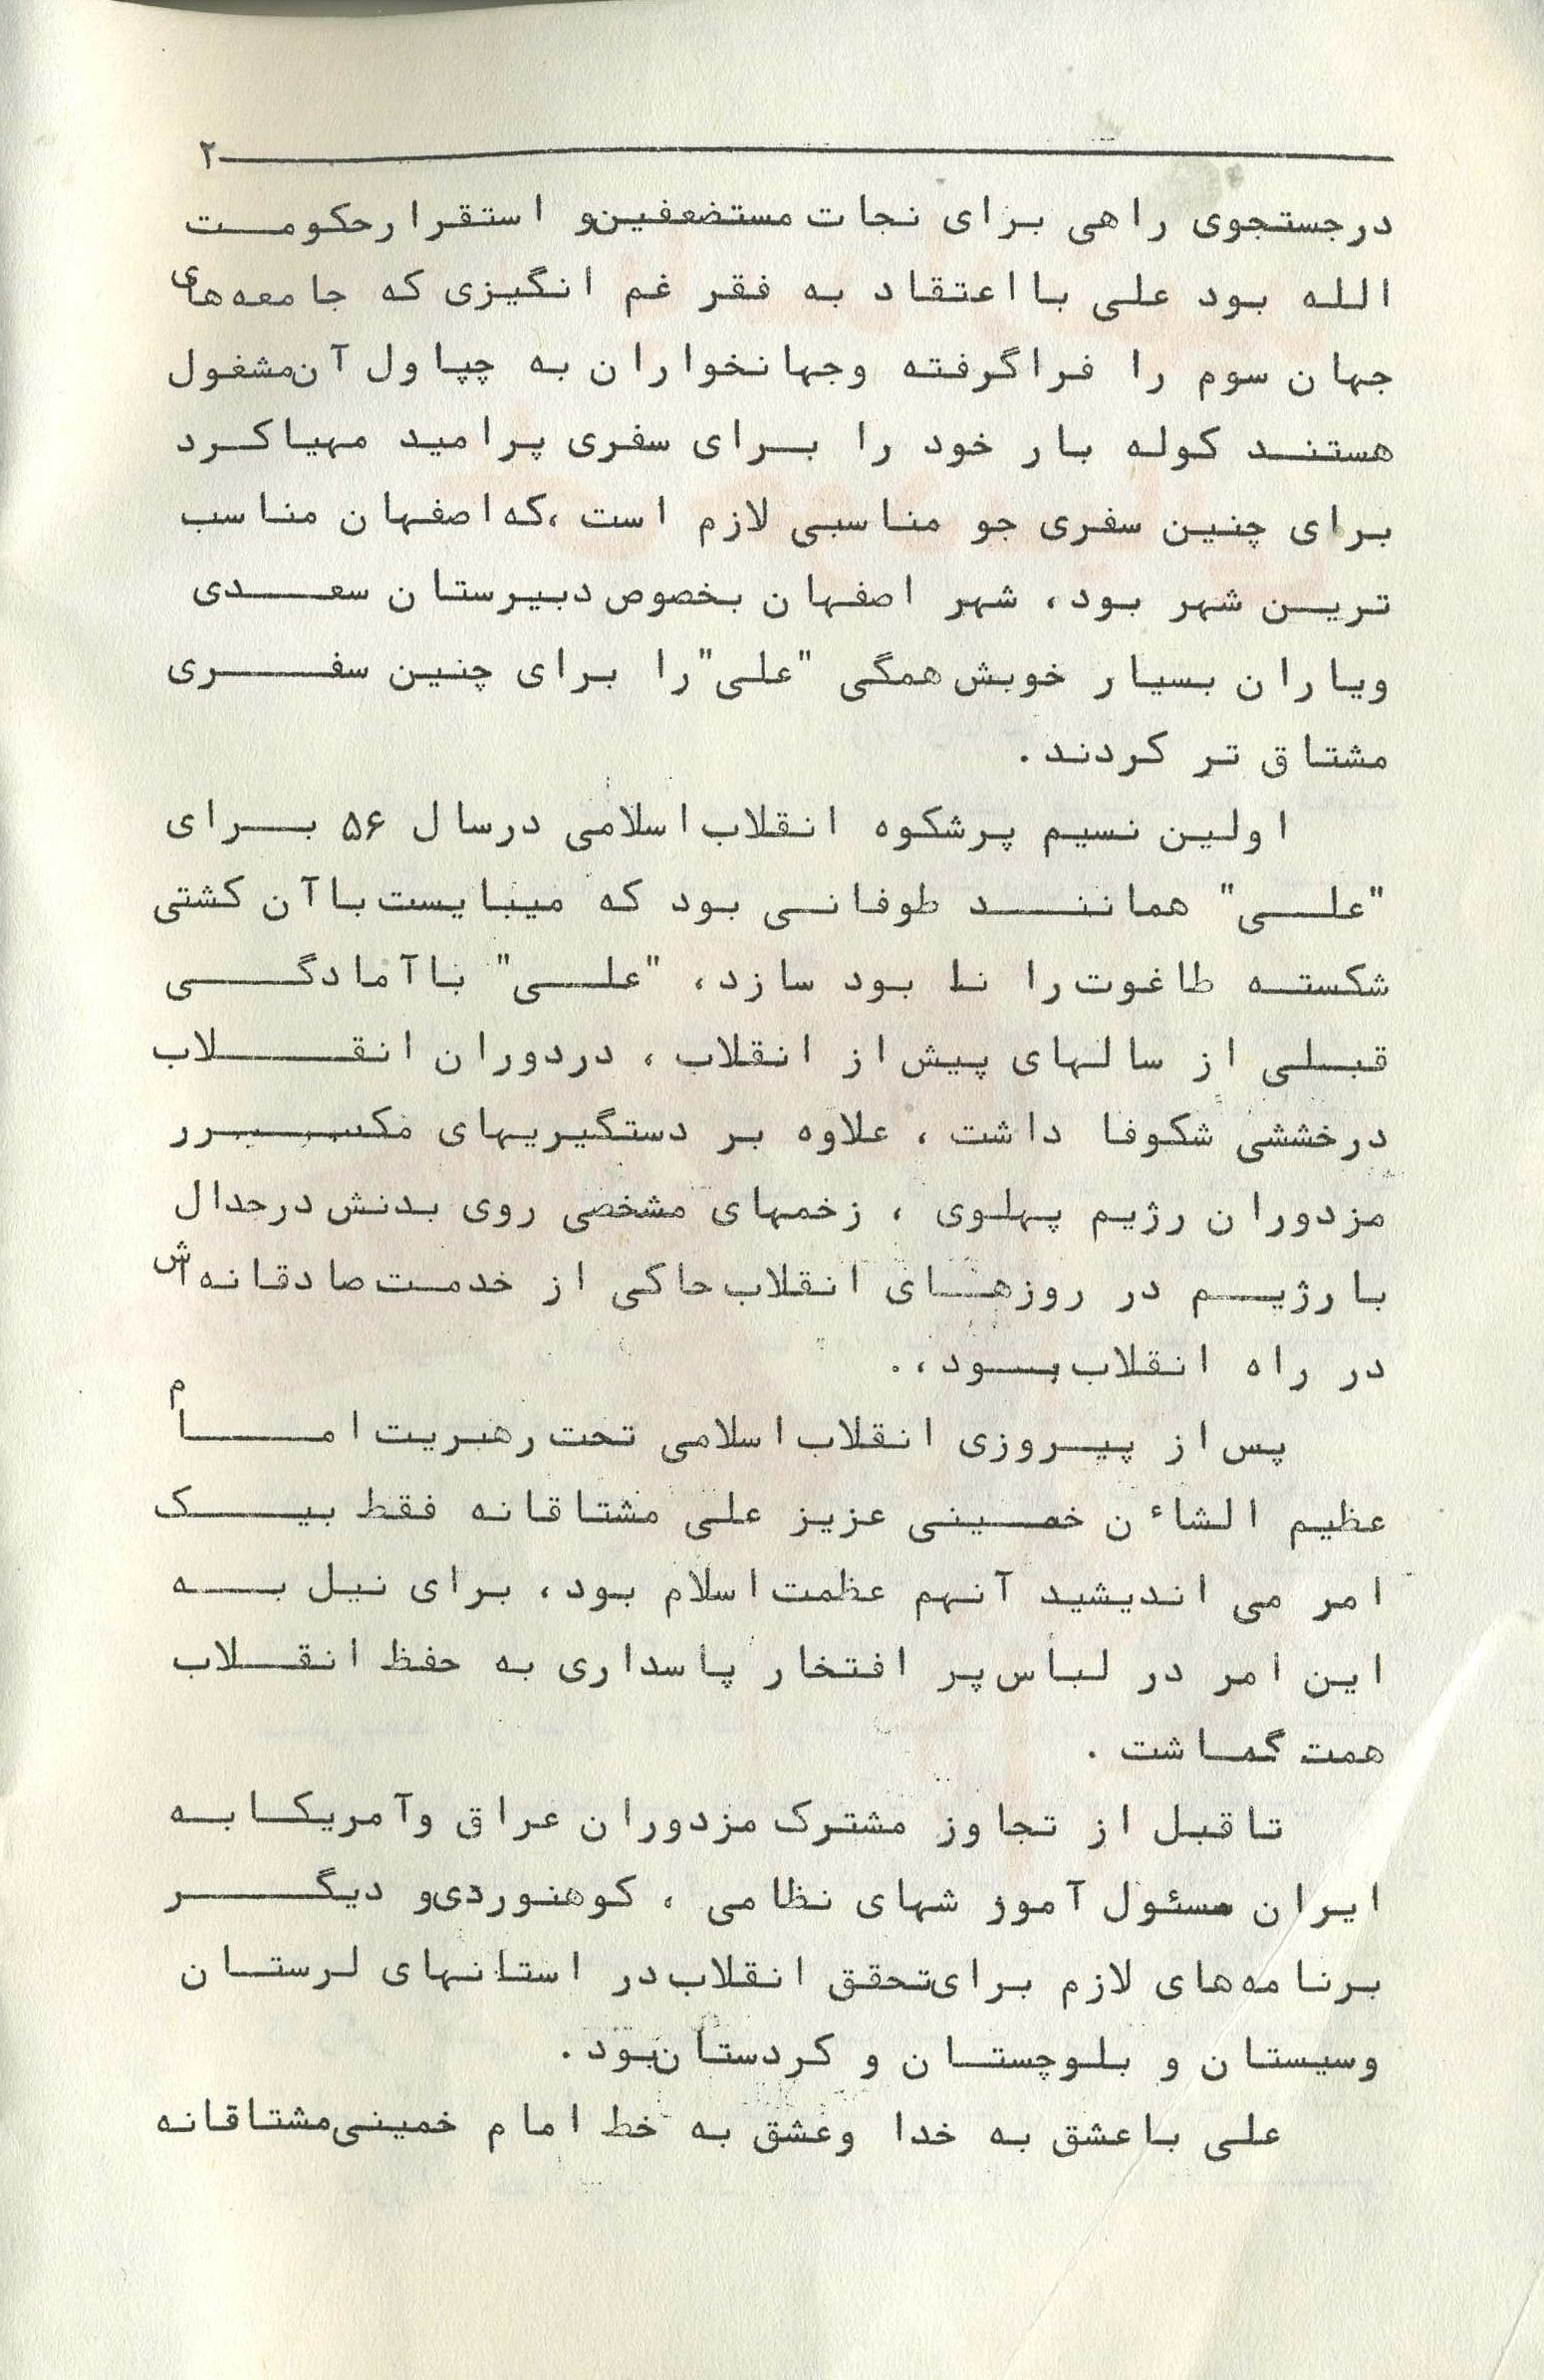 ۲
درجستجوی راهی برای نجات مستضعفین و استقرار حکومت
الله بود علی با اعتقاد به فقر غم انگیزی که جامعه‌های
جهان سوم را فراگرفته وجهانخواران به چپاول آن مشغول
هستند کوله بار خود را برای سفری پرامید مهیا کرد
برای چنین سفری جو مناسبی لازم است ،که اصفهان مناسب
ترین شهر بود، شهر اصفهان بخصوص دبیرستان سعدی
ویاران بسیار خوبش همگی "علی" را برای چنین سفری
مشتاق تر کردند.
اولین نسیم پرشکوه انقلاب اسلامی درسال ۵۶ برای
"علی" همانند طوفانی بود که میبایست با آن کشتی
شکسته طاغوت را نا بود سازد، "علی" با آمادگی
قبلی از سالهای پیش از انقلاب ، دردوران انقلاب
درخششی شکوفا داشت ، علاوه بر دستگیریهای مکرر
مزدوران رژیم پهلوی ، زخمهای مشخصی روی بدنش درجدال
بارژیم در روزهای انقلاب حاکی از خدمت صادقانه‌اش
در راه انقلاب بود، .
پس از پیروزی انقلاب اسلامی تحت رهبریت امام
عظیم الشاءن خمینی عزیز علی مشتاقانه فقط بیک
امر می اندیشید آنهم عظمت اسلام بود، برای نیل به
این امر در لباس پر افتخار پاسداری به حفظ انقلاب
همت گماشت .
تاقبل از تجاوز مشترک مزدوران عراق وآمریکا به
ایران مسئول آموزشهای نظامی ، کوهنوردی و دیگر
برنامه‌های لازم برای تحقق انقلاب در استانهای لرستان
وسیستان و بلوچستان و کردستان بود.
علی باعشق به خدا وعشق به خط امام خمینی مشتاقانه